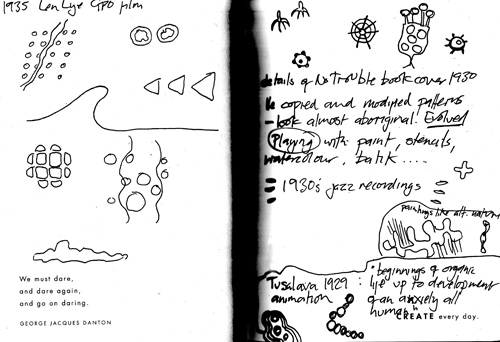 1935 Len Lye GPO film
We must dare,
and dare again,
and go on daring.
GEORGE JACQUES DANTON
details of No Trouble book cover 1930
He copied and modified patterns
– look almost aboriginal! Evolved
Playing with paint, stencils,
watercolour, batik ....
= 1930's jazz recordings =
paintings like alt. nature
Tusalava 1929 :
animation
* beginnings of organic
life up to development
of an anxiety all
human"
CREATE every day.